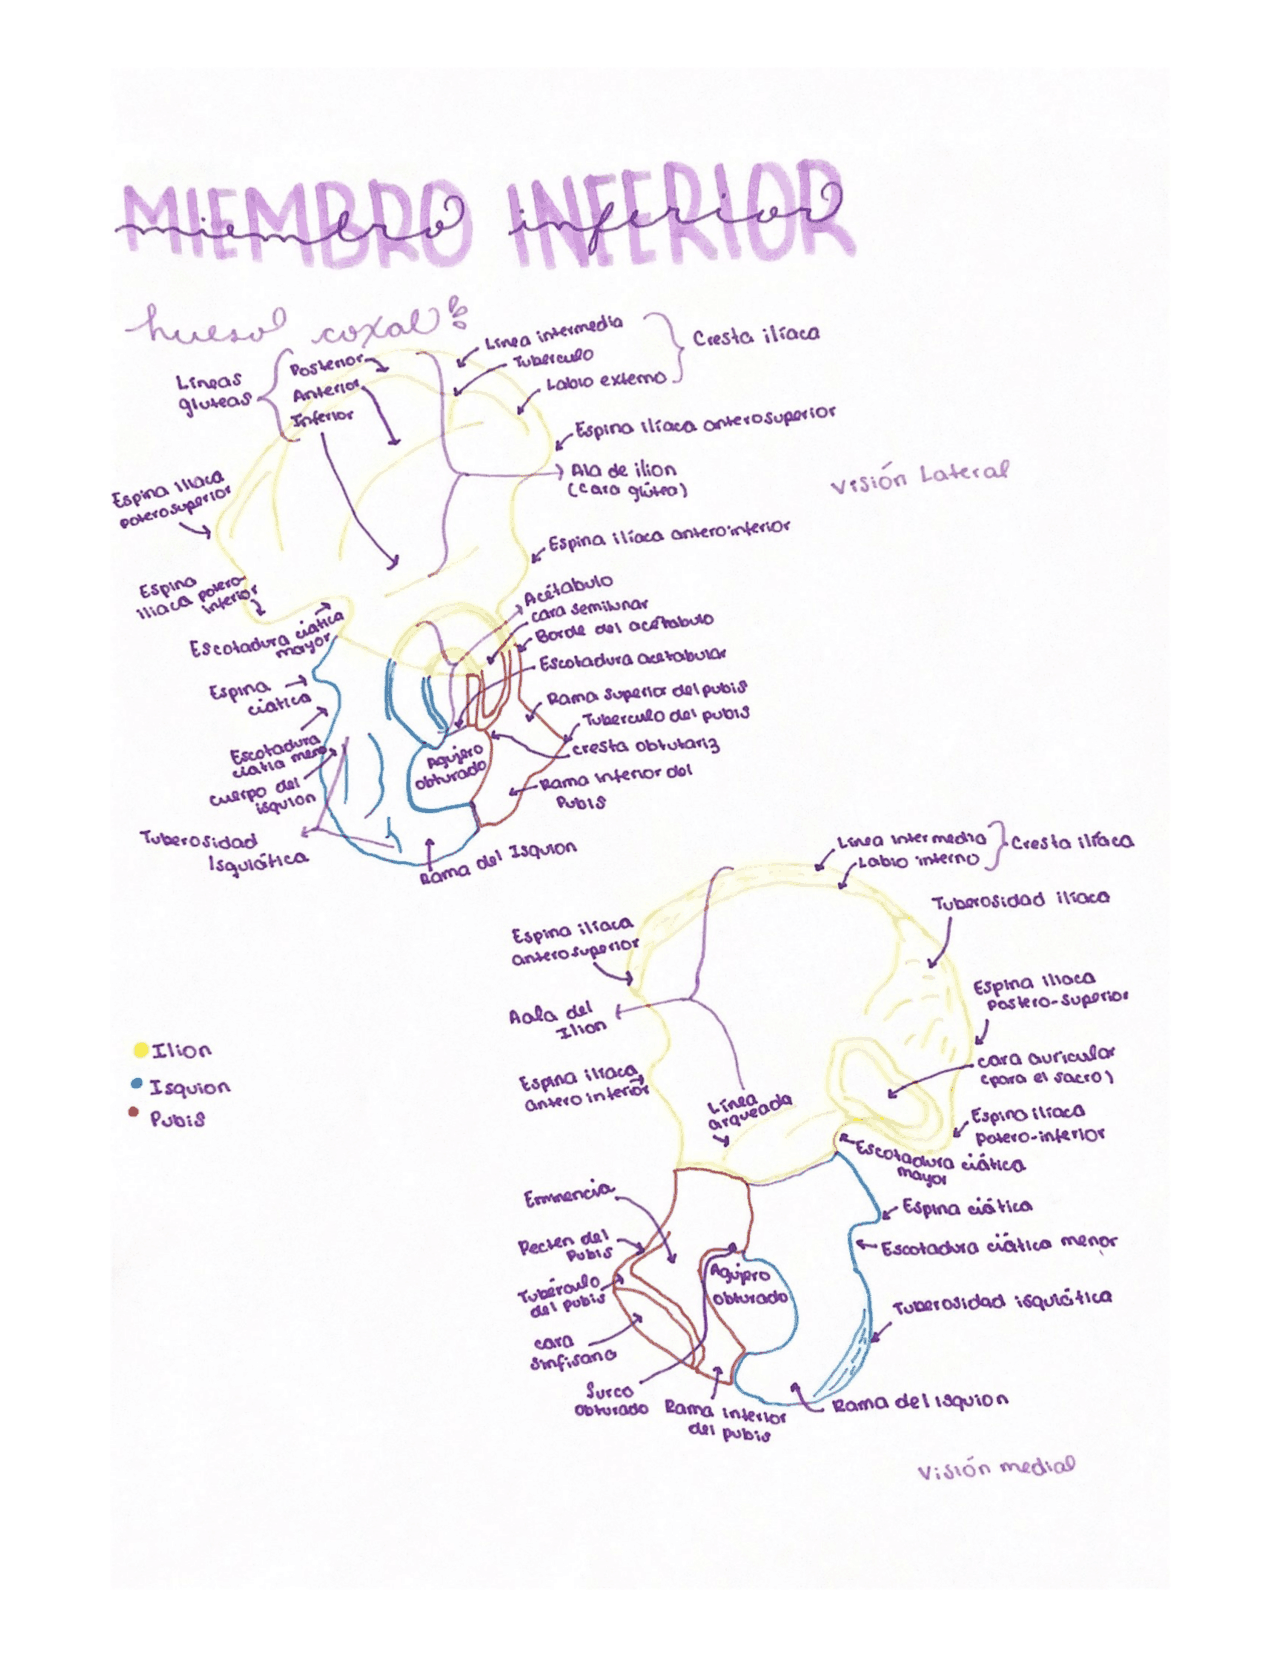 MIEMBRO INFERIOR
miembro inferior
hueso coxal
Líneas
gluteas
Posterior
Anterior
Inferior
Línea intermedia
Tubérculo
Labio externo
Cresta ilíaca
Espina ilíaca anterosuperior
Ala de ilion
(cara glútea)
Visión Lateral
Espina iliaca
poterosuperior
Espina ilíaca anteroinferior
Espina
iliaca potero-
inferior
Escotadura ciática
mayor
Acetábulo
cara semilunar
Borde del acetabulo
Escotadura acetabular
Espina
ciatica
Rama superior del pubis
Tuberculo del pubis
Escotadura
ciatia meno
cresta obtutariz
Agujero
obturado
cuerpo del
isquion
Rama inferior del
Pubis
Tuberosidad
Isquiática
Rama del Isquion
Línea intermedia
Labio interno
Cresta ilíaca
Tuberosidad ilíaca
Espina ilíaca
anterosuperior
Espina iliaca
Postero-superior
Aala del
Ilion
Ilion
Isquion
Pubis
cara auricular
(para el sacro)
Espina iliaca
antero inferior
Línea
arqueada
Espina ilíaca
potero-inferior
Escotadura ciática
mayor
Eminencia
Espina ciática
Pecten del
Pubis
Escotadura ciática menor
Agujero
obturado
Tubérculo
del pubis
Tuberosidad isquiática
cara
sinfisana
Surco
obturado
Rama inferior
del pubis
Rama del isquion
Visión medial